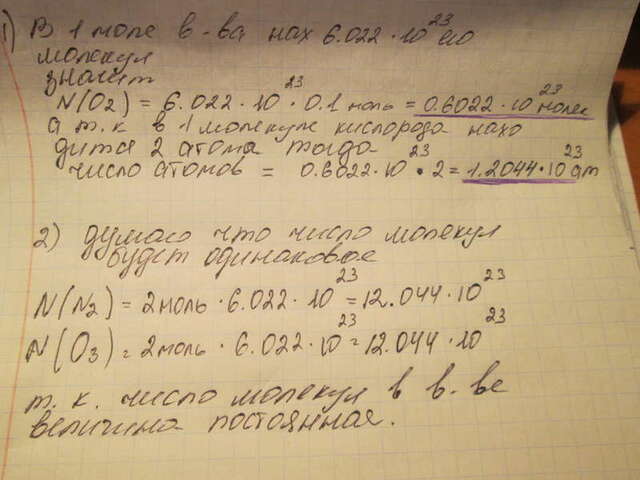 1) В 1 моле в-ва нах 6.022 · 10^23 его
молекул
значит
N(O2) = 6.022 · 10^23 · 0.1 моль = 0.6022 · 10^23 молек
а т.к в 1 молекуле кислорода нахо
дится 2 атома тогда
число атомов = 0.6022 · 10^23 · 2 = 1.2044 · 10^23 ат
2) думаю что число молекул
будет одинаковое
N(N2) = 2 моль · 6.022 · 10^23 = 12.044 · 10^23
N(O3) = 2 моль · 6.022 · 10^23 = 12.044 · 10^23
т. к. число молекул в в-ве
величина постоянная.